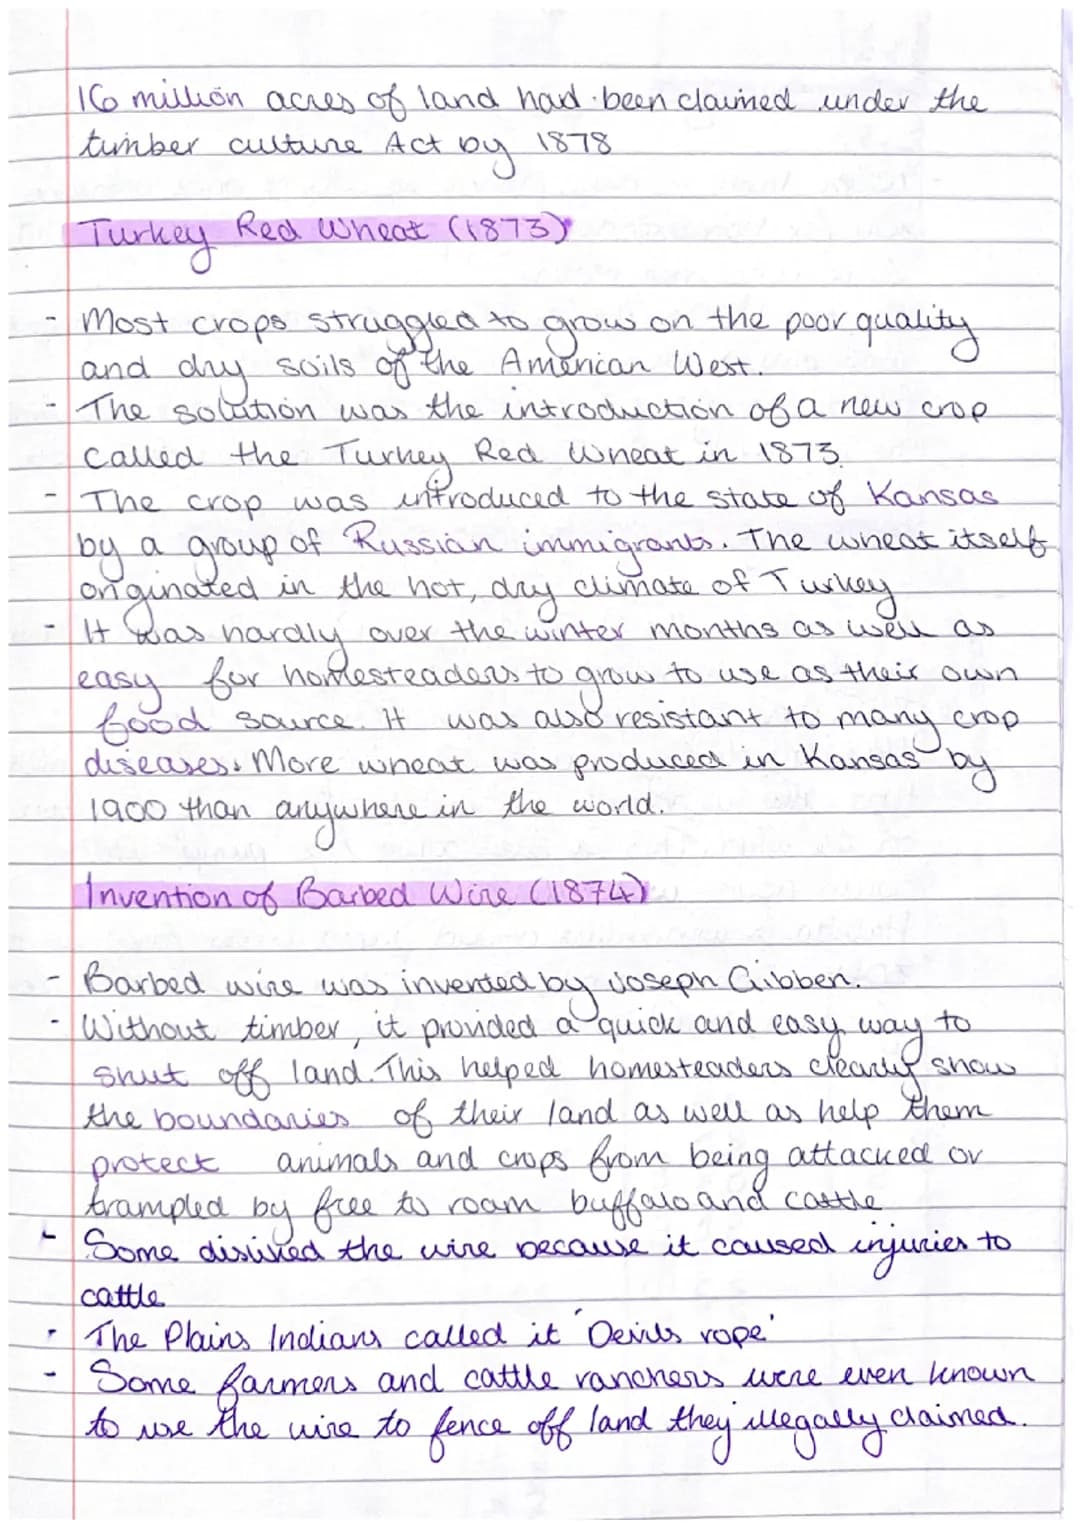 16 million acres of land had been claimed under the
timber culture Act by 1878
Turkey Red Wheat (1873)
- Most crops struggled to grow on the poor quality
and dry soils of the American West.
- The solution was the introduction of a new crop
called the Turkey Red Wheat in 1873.
- The crop was introduced to the state of Kansas
by a group of Russian immigrants. The wheat itself
originated in the hot, dry climate of Turkey
- It was hardly over the winter months as well as
easy for homesteaders to grow to use as their own
food source. It was also resistant to many crop
diseases. More wheat was produced in Kansas by
1900 than anywhere in the world.
Invention of Barbed Wire (1874)
- Barbed wire was invented by Joseph Gibben.
- Without timber, it provided a quick and easy way to
shut off land. This helped homesteaders clearly show
the boundaries of their land as well as help them
protect animals and crops from being attacked or
trampled by free to roam buffalo and cattle
- Some disliked the wire because it caused injuries to
cattle
- The Plains Indians called it 'Devils rope'
- Some farmers and cattle ranchers were even known
to use the wire to fence off land they illegally claimed.